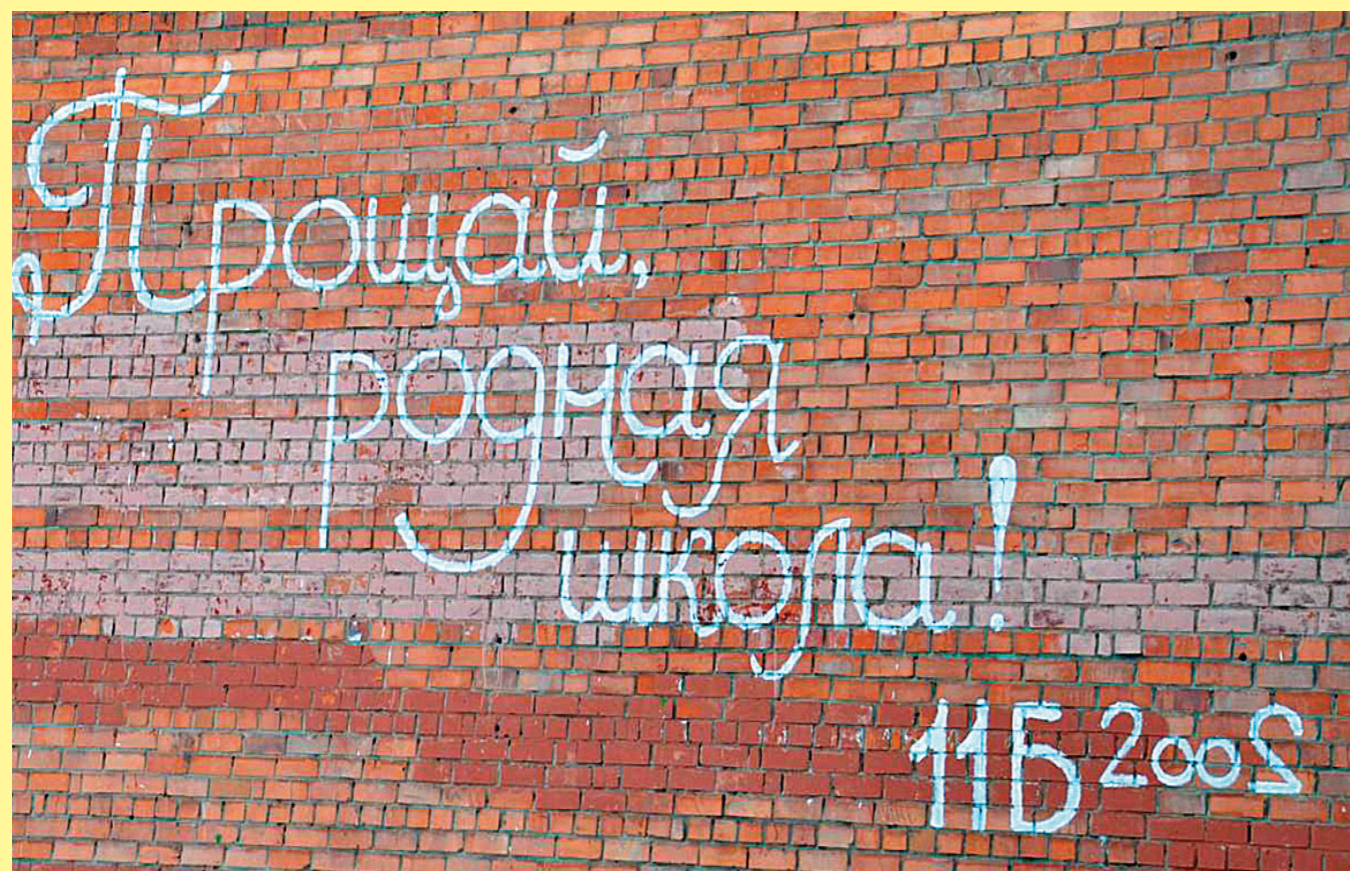 Прощай,
родная
школа!
11Б 2002